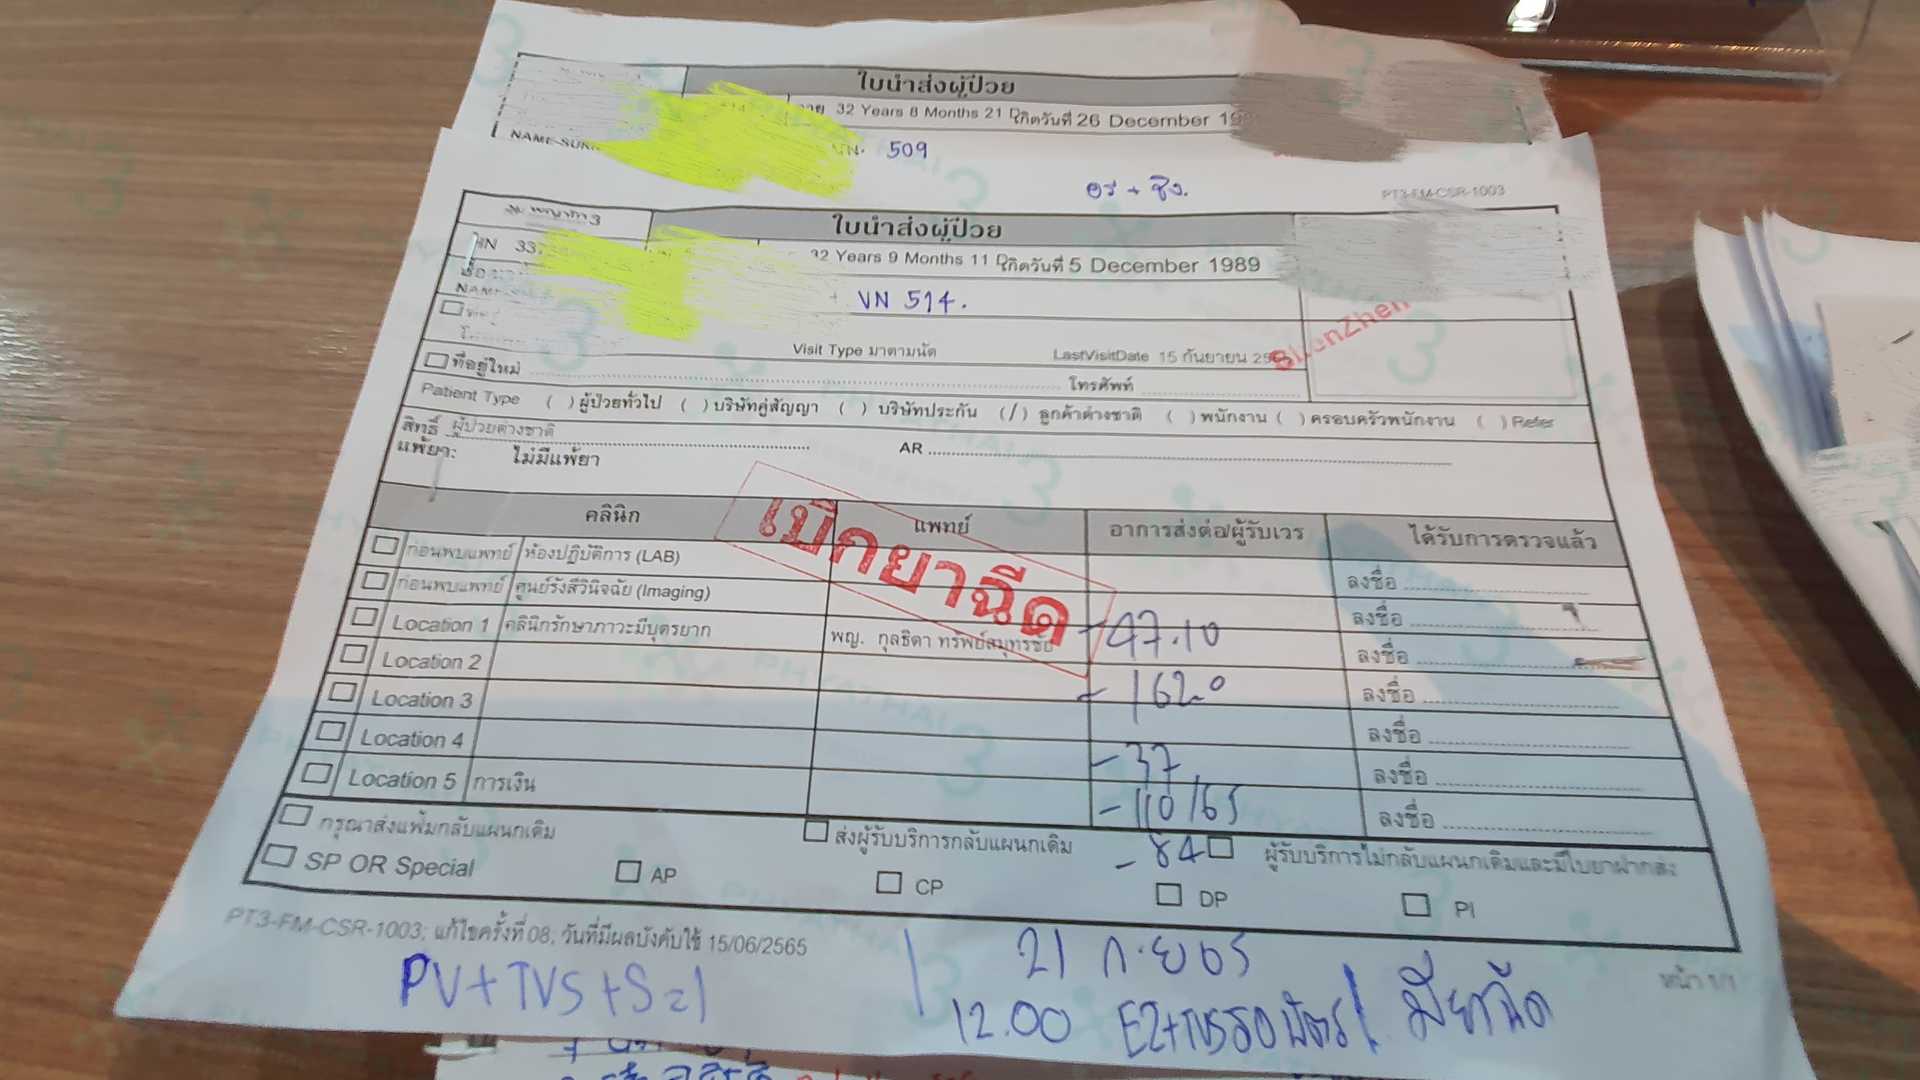 ใบนำส่งผู้ป่วย
32 Years 8 Months 21 D เกิดวันที่ 26 December
VN. 509
อร + ชิง. PT3-FM-CSR-1003
ใบนำส่งผู้ป่วย
HN 337
32 Years 9 Months 11 D เกิดวันที่ 5 December 1989
VN 514.
ShenZhen
Visit Type มาตามนัด LastVisitDate 15 กันยายน
ที่อยู่ใหม่ โทรศัพท์
Patient Type ( ) ผู้ป่วยทั่วไป ( ) บริษัทคู่สัญญา ( ) บริษัทประกัน (/) ลูกค้าต่างชาติ ( ) พนักงาน ( ) ครอบครัวพนักงาน ( ) Refer
สิทธิ์ ผู้ป่วยต่างชาติ AR
แพ้ยา: ไม่มีแพ้ยา
เบิกยาฉีด
คลินิก แพทย์ อาการส่งต่อ/ผู้รับเวร ได้รับการตรวจแล้ว
ก่อนพบแพทย์ ห้องปฏิบัติการ (LAB) ลงชื่อ
ก่อนพบแพทย์ ศูนย์รังสีวินิจฉัย (Imaging) ลงชื่อ
Location 1 คลินิกรักษาภาวะมีบุตรยาก พญ. กุลธิดา ทรัพย์สมุทรชัย - 47.10 ลงชื่อ
Location 2 - 162.0 ลงชื่อ
Location 3 ลงชื่อ
Location 4 - 37 ลงชื่อ
Location 5 การเงิน - 110/65 ลงชื่อ
กรุณาส่งแฟ้มกลับแผนกเดิม ส่งผู้รับบริการกลับแผนกเดิม - 84 ผู้รับบริการไม่กลับแผนกเดิมและมีใบยาฝากส่ง
SP OR Special AP CP DP PI
PT3-FM-CSR-1003; แก้ไขครั้งที่ 08; วันที่มีผลบังคับใช้ 15/06/2565 หน้า 1/1
PV+TVS+S=1
21 ก.ย 65
12.00 E2+TVS รอ บัตร / มียาฉีด